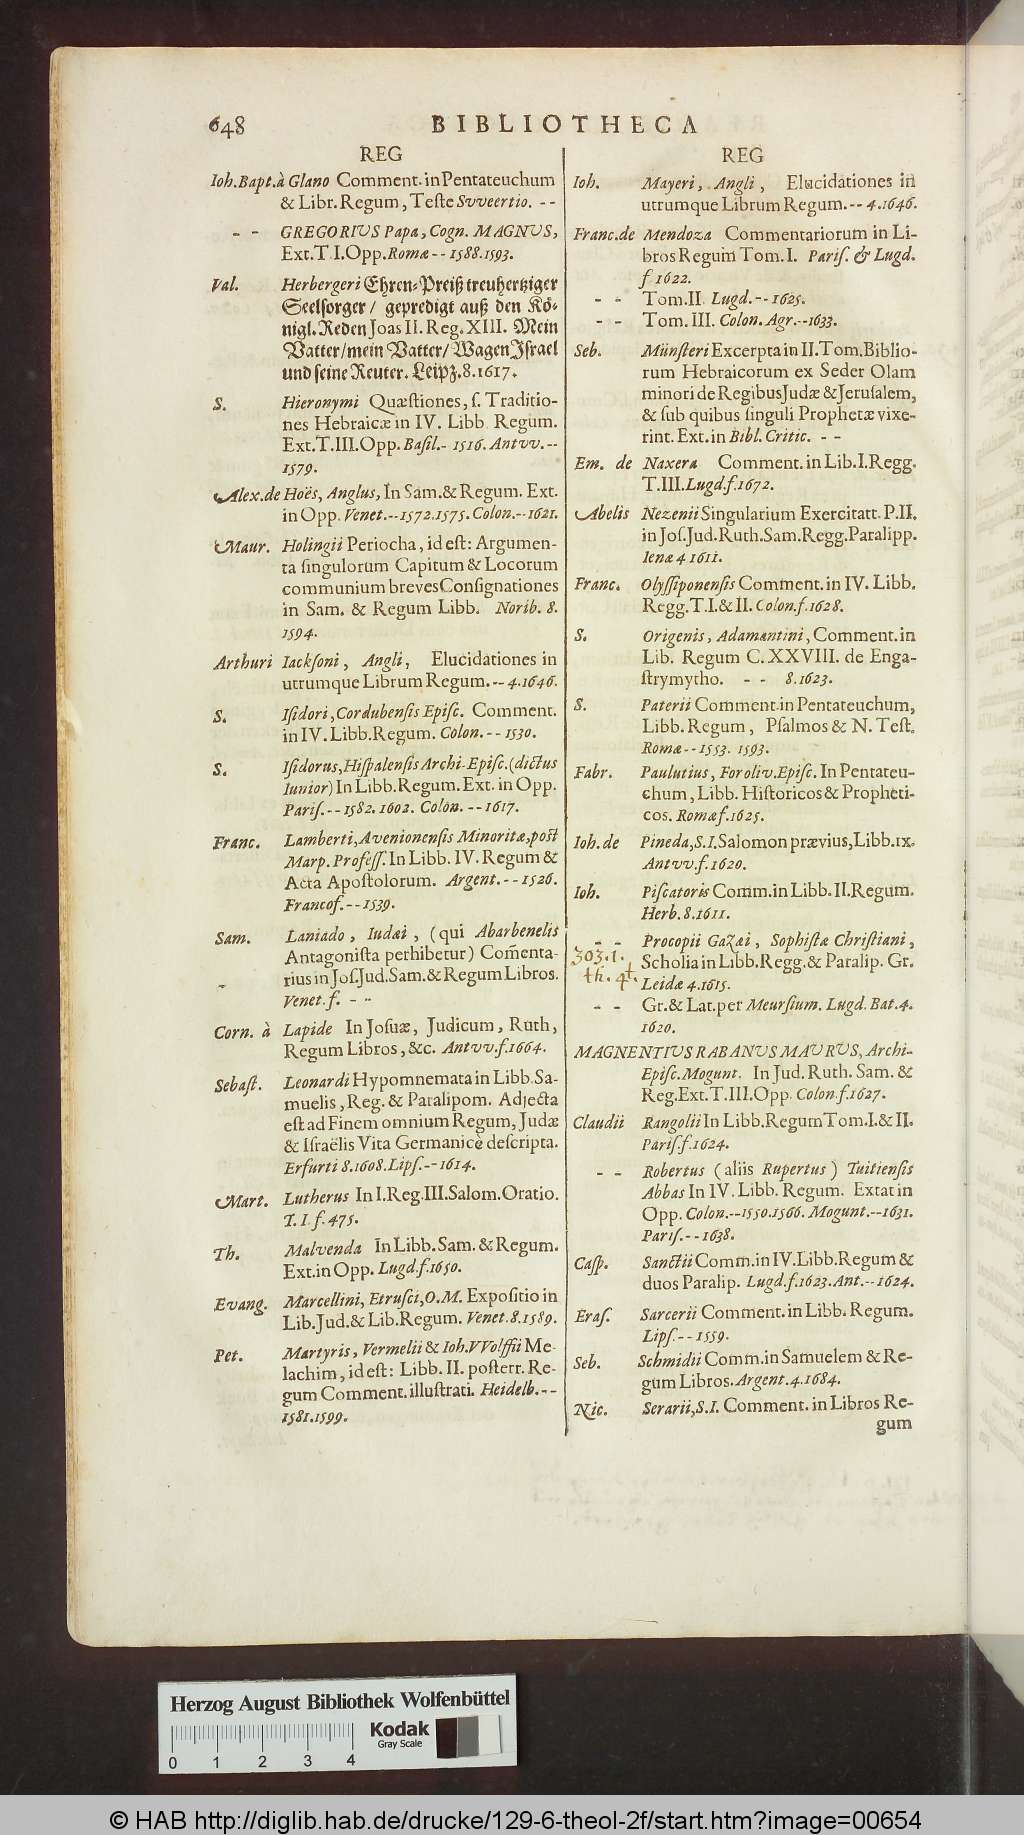 648 BIBLIOTHECA
REG
Ioh. Bapt. à Glano Comment. in Pentateuchum
& Libr. Regum, Teſte Svveertio. --
-- GREGORIUS Papa, Cogn. MAGNUS,
Ext. T. I. Opp. Romæ -- 1588. 1593.
Val. Herbergeri Ehren-Preiß treuhertziger
Seelſorger / gepredigt auß den Kö-
nigl. Reden Joas II. Reg. XIII. Mein
Vatter/mein Vatter/ Wagen Iſrael
und ſeine Reuter. Leipz. 8. 1617.
S. Hieronymi Quæſtiones, ſ. Traditio-
nes Hebraicæ in IV. Libb. Regum.
Ext. T. III. Opp. Baſil. - 1516. Antvv. --
1579.
Alex. de Hoës, Anglus, In Sam. & Regum. Ext.
in Opp. Venet. -- 1572. 1575. Colon. -- 1621.
Maur. Holingii Periocha, id eſt: Argumen-
ta ſingulorum Capitum & Locorum
communium breves Conſignationes
in Sam. & Regum Libb. Norib. 8.
1594.
Arthuri Iackſoni, Angli, Elucidationes in
utrumque Librum Regum. -- 4. 1646.
S. Iſidori, Cordubenſis Epiſc. Comment.
in IV. Libb. Regum. Colon. -- 1530.
S. Iſidorus, Hiſpalenſis Archi-Epiſc. (dictus
Iunior) In Libb. Regum. Ext. in Opp.
Pariſ. -- 1582. 1602. Colon. -- 1617.
Franc. Lamberti, Avenionenſis Minoritæ, poſt
Marp. Profeſſ. In Libb. IV. Regum &
Acta Apoſtolorum. Argent. -- 1526.
Francof. -- 1539.
Sam. Laniado, Iudæi, (qui Abarbenelis
Antagoniſta perhibetur) Com̃enta-
rius in Joſ. Jud. Sam. & Regum Libros.
Venet. f. - --
Corn. à Lapide In Joſuæ, Judicum, Ruth,
Regum Libros, &c. Antvv. f. 1664.
Sebaſt. Leonardi Hypomnemata in Libb. Sa-
muelis, Reg. & Paralipom. Adjecta
eſt ad Finem omnium Regum, Judæ
& Iſraëlis Vita Germanicè deſcripta.
Erfurti 8. 1608. Lipſ. -- 1614.
Mart. Lutherus In I. Reg. III. Salom. Oratio.
T. I. f. 475.
Th. Malvenda In Libb. Sam. & Regum.
Ext. in Opp. Lugd. f. 1650.
Evang. Marcellini, Etruſci, O. M. Expoſitio in
Lib. Jud. & Lib. Regum. Venet. 8. 1589.
Pet. Martyris, Vermelii & Ioh. VVolffii Me-
lachim, id eſt: Libb. II. poſterr. Re-
gum Comment. illuſtrati. Heidelb. --
1581. 1599.
REG
Ioh. Mayeri, Angli, Elucidationes in
utrumque Librum Regum. -- 4. 1646.
Franc. de Mendoza Commentariorum in Li-
bros Regum Tom. I. Pariſ. & Lugd.
f 1622.
-- Tom. II. Lugd. -- 1625.
-- Tom. III. Colon. Agr. -- 1633.
Seb. Münſteri Excerpta in II. Tom. Biblio-
rum Hebraicorum ex Seder Olam
minori de Regibus Judæ & Jeruſalem,
& ſub quibus ſinguli Prophetæ vixe-
rint. Ext. in Bibl. Critic. --
Em. de Naxera Comment. in Lib. I. Regg.
T. III. Lugd. f. 1672.
Abelis Nezenii Singularium Exercitatt. P. II.
in Joſ. Jud. Ruth. Sam. Regg. Paralipp.
Ienæ 4 1611.
Franc. Olyſſiponenſis Comment. in IV. Libb.
Regg. T. I. & II. Colon. f. 1628.
S. Origenis, Adamantini, Comment. in
Lib. Regum C. XXVIII. de Enga-
ſtrymytho. -- 8. 1623.
S. Paterii Comment. in Pentateuchum,
Libb. Regum, Pſalmos & N. Teſt.
Romæ -- 1553. 1593.
Fabr. Paulutius, Foroliv. Epiſc. In Pentateu-
chum, Libb. Hiſtoricos & Propheti-
cos. Romæ f. 1625.
Ioh. de Pineda, S. I. Salomon prævius, Libb. IX.
Antvv. f. 1620.
Ioh. Piſcatoris Comm. in Libb. II. Regum.
Herb. 8. 1611.
-- Procopii Gazæi, Sophiſtæ Chriſtiani,
303. 1. Scholia in Libb. Regg. & Paralip. Gr.
th. 4t. Leidæ 4. 1615.
-- Gr. & Lat. per Meurſium. Lugd. Bat. 4.
1620.
MAGNENTIUS RABANUS MAURUS, Archi-
Epiſc. Mogunt. In Jud. Ruth. Sam. &
Reg. Ext. T. III. Opp. Colon. f. 1627.
Claudii Rangolii In Libb. Regum Tom. I. & II.
Pariſ. f. 1624.
-- Robertus (aliis Rupertus) Tuitienſis
Abbas In IV. Libb. Regum. Extat in
Opp. Colon. -- 1550. 1566. Mogunt. -- 1631.
Pariſ. -- 1638.
Caſp. Sanctii Comm. in IV. Libb. Regum &
duos Paralip. Lugd. f. 1623. Ant. -- 1624.
Eraſ. Sarcerii Comment. in Libb. Regum.
Lipſ. -- 1559.
Seb. Schmidii Comm. in Samuelem & Re-
gum Libros. Argent. 4. 1684.
Nic. Serarii, S. I. Comment. in Libros Re-
gum
Herzog August Bibliothek Wolfenbüttel
Kodak
Gray Scale
0 1 2 3 4
© HAB http://diglib.hab.de/drucke/129-6-theol-2f/start.htm?image=00654